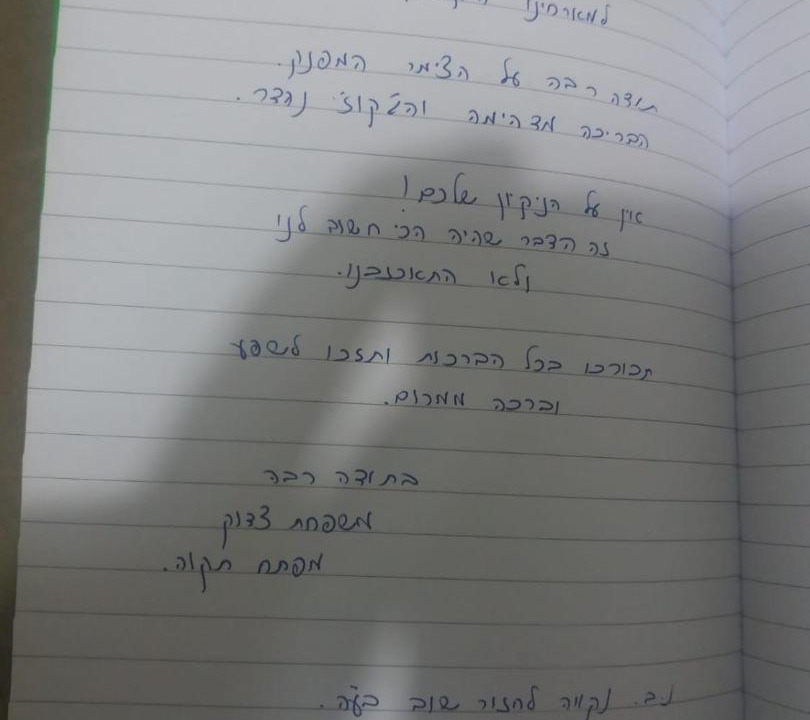 למארחינו
תודה רבה על הצימר המפנק.
הבריכה מדהימה והג'קוזי נהדר.
אין על הניקיון שלכם!
זה הדבר שהיה הכי חשוב לנו
ולא התאכזבנו.
תבורכו בכל הברכות ותזכו לשפע
וברכה ממרום.
בתודה רבה
משפחת צדוק
מפתח תקוה.
נ.ב. נקווה לחזור שוב בע"ה.